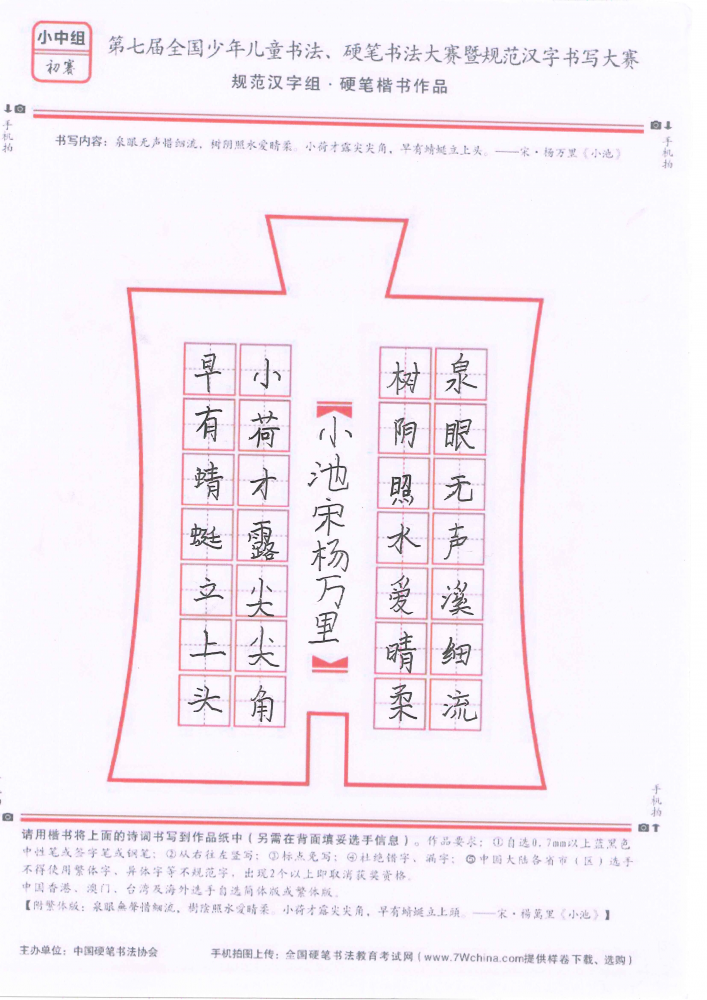 小中组
初赛
第七届全国少年儿童书法、硬笔书法大赛暨规范汉字书写大赛
规范汉字组·硬笔楷书作品
手机拍
手机拍
书写内容：泉眼无声惜细流，树阴照水爱晴柔。小荷才露尖尖角，早有蜻蜓立上头。——宋·杨万里《小池》
泉眼无声溪细流
树阴照水爱晴柔
小池宋杨万里
小荷才露尖尖角
早有蜻蜓立上头
手机拍
请用楷书将上面的诗词书写到作品纸中（另需在背面填妥选手信息）。作品要求：①自选0.7mm以上蓝黑色
中性笔或签字笔或钢笔；②从右往左竖写；③标点免写；④杜绝错字、漏字；⑤中国大陆各省市（区）选手
不得使用繁体字、异体字等不规范字，出现2个以上即取消获奖资格。
中国香港、澳门、台湾及海外选手自选简体版或繁体版。
【附繁体版：泉眼無聲惜細流，樹陰照水愛晴柔。小荷才露尖尖角，早有蜻蜓立上頭。——宋·楊萬里《小池》】
主办单位：中国硬笔书法协会
手机拍图上传：全国硬笔书法教育考试网（www.7Wchina.com提供样卷下载、选购）